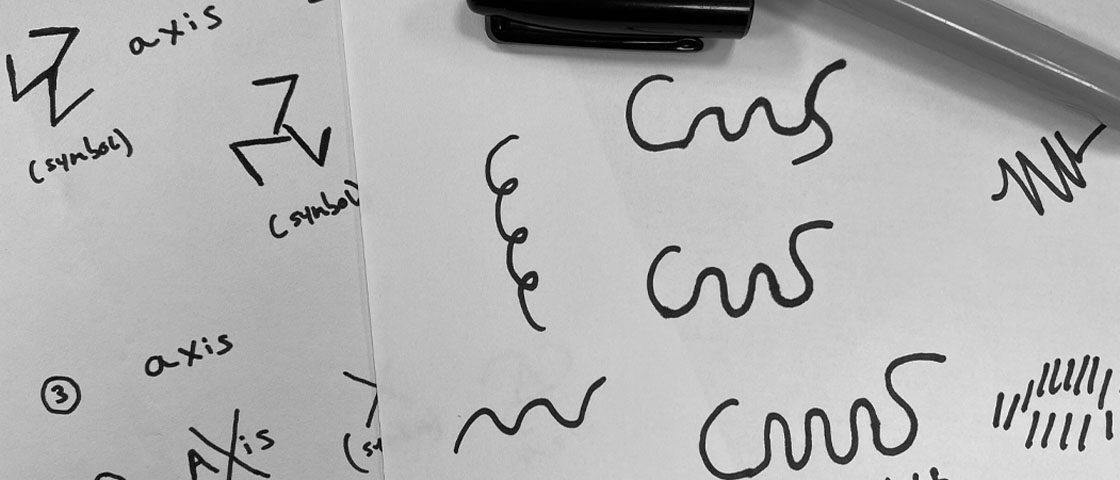 axis
(symbol)
(symbol)
axis
3
AXis